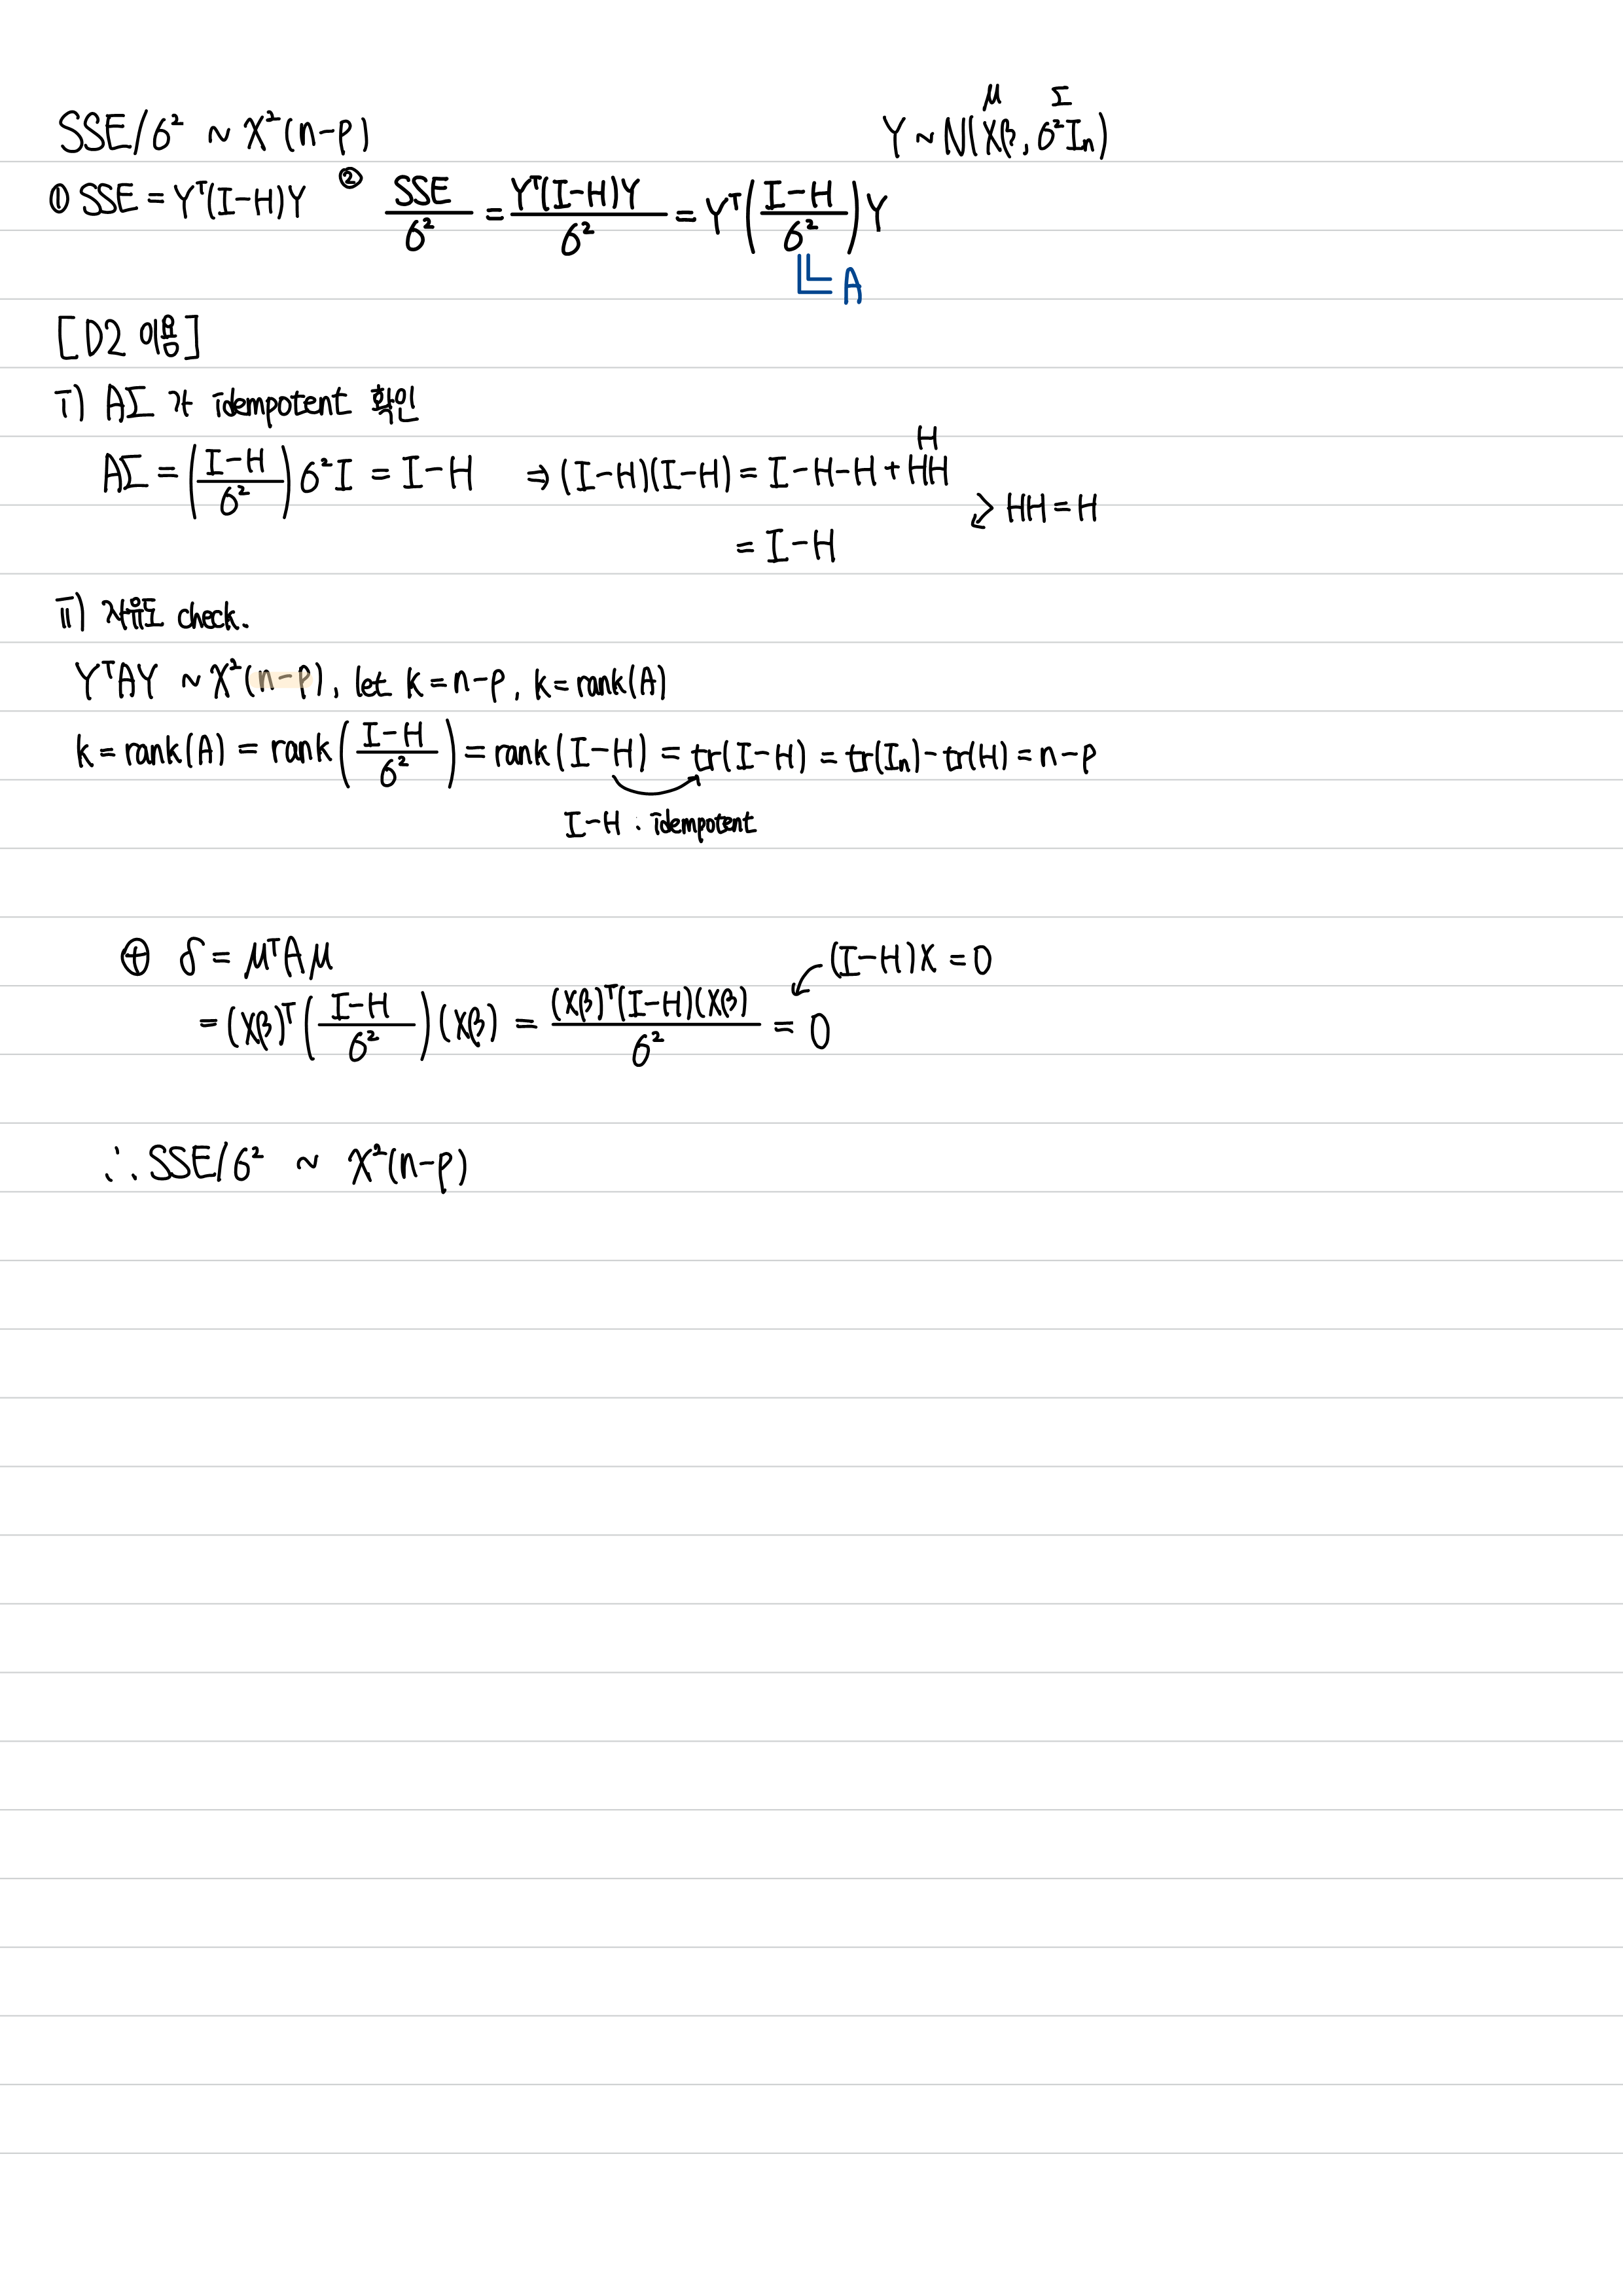 SSE/σ² ~ χ²(n-p)
Y ~ N(Xβ, σ²Iₙ)
μ Σ
① SSE = Yᵀ(I-H)Y ② SSE/σ² = Yᵀ(I-H)Y/σ² = Yᵀ((I-H)/σ²)Y
A
[D2 이용]
i) AΣ가 idempotent 확인
AΣ = ((I-H)/σ²)σ²I = I-H ⇒ (I-H)(I-H) = I-H-H+HH
H
HH=H
= I-H
ii) 자유도 check.
YᵀAY ~ χ²(n-p), let k=n-p, k=rank(A)
k = rank(A) = rank((I-H)/σ²) = rank(I-H) = tr(I-H) = tr(Iₙ)-tr(H) = n-p
I-H : idempotent
⊕ δ = μᵀAμ
(I-H)X = 0
= (Xβ)ᵀ((I-H)/σ²)(Xβ) = (Xβ)ᵀ(I-H)(Xβ)/σ² = 0
∴ SSE/σ² ~ χ²(n-p)